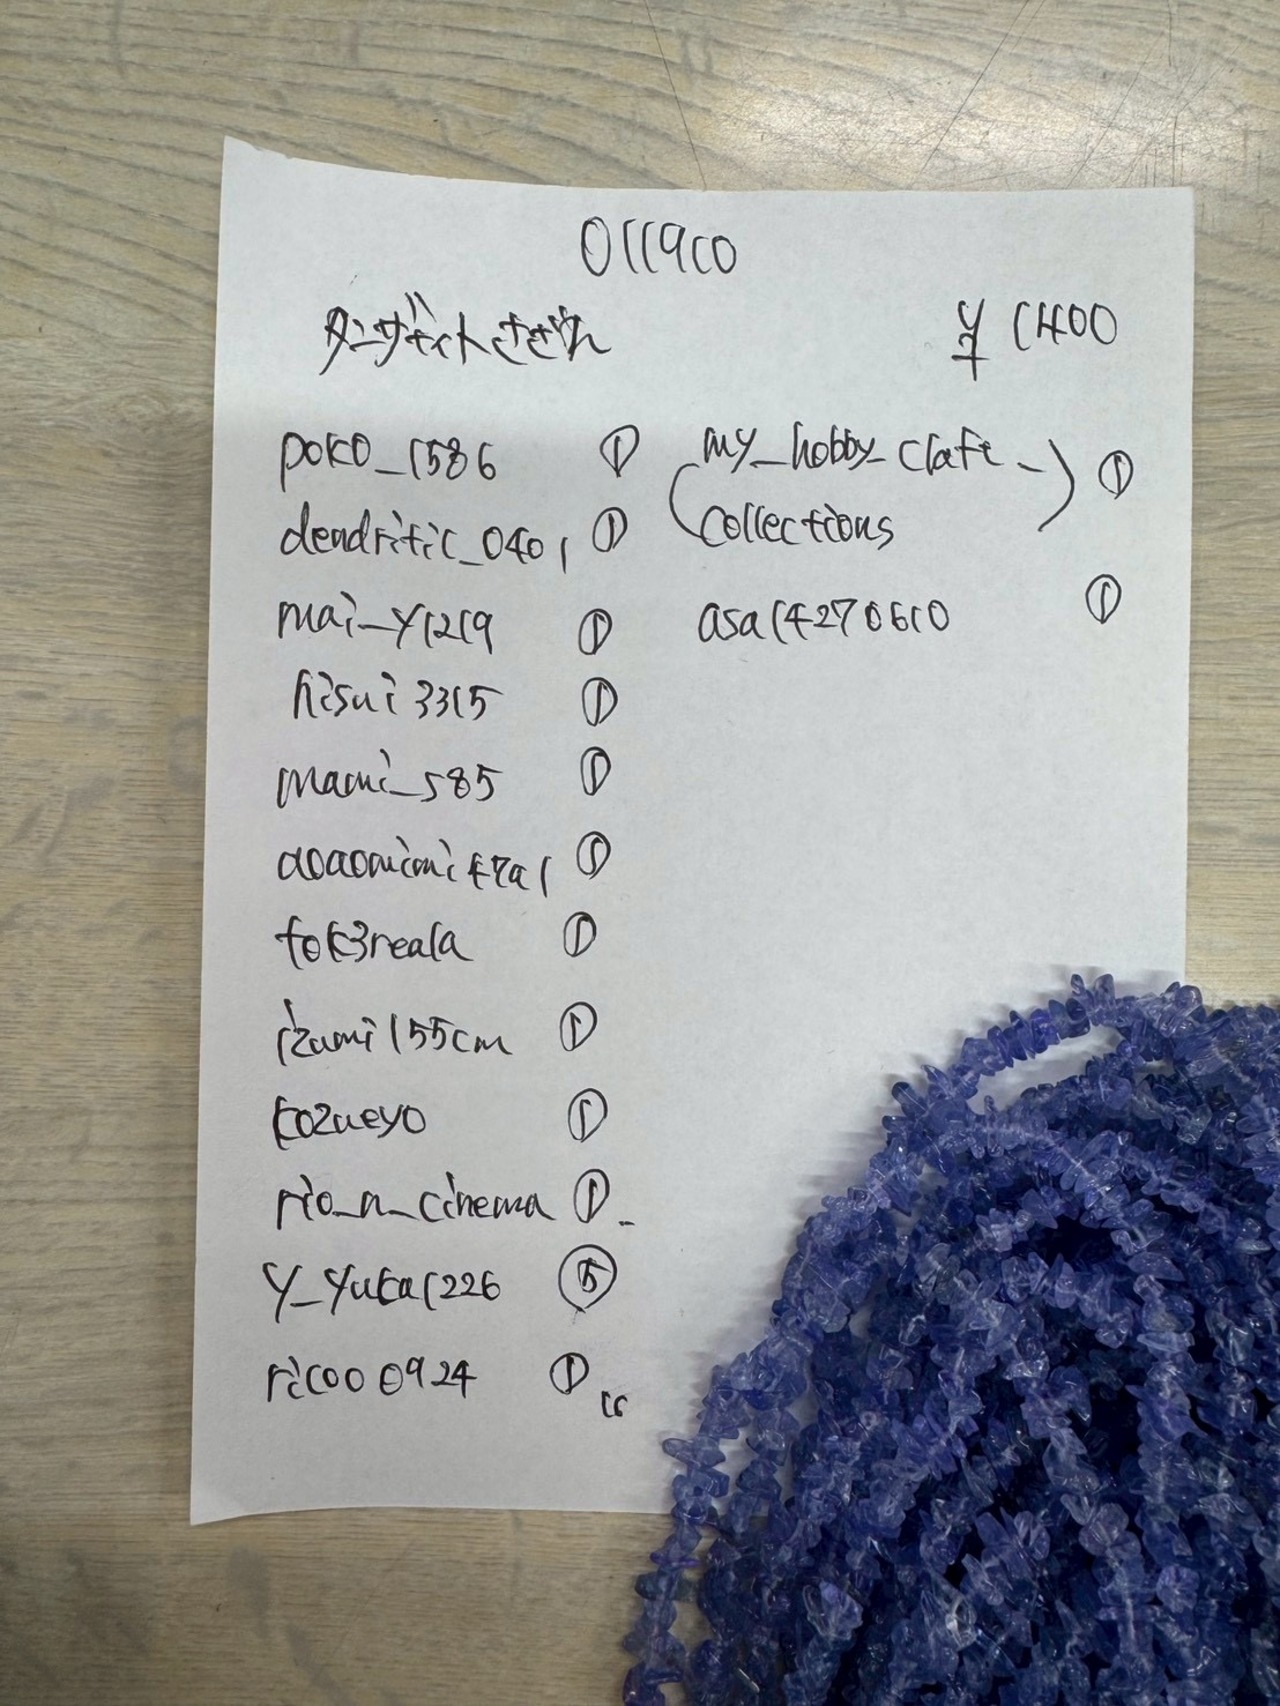 011910
タンザナイトさざれ
¥ 1400
poko_1586 ①
dendritic_0401 ①
mai_y1219 ①
hisui3315 ①
mami_s85 ①
①
tok3reala ①
izumi155cm ①
kozueyo ①
rio_n_cinema ①
y_yuka1226 ⑤
ricoo0924 ①
16
(my_hobby_claft_
collections) ①
asa14270610 ①